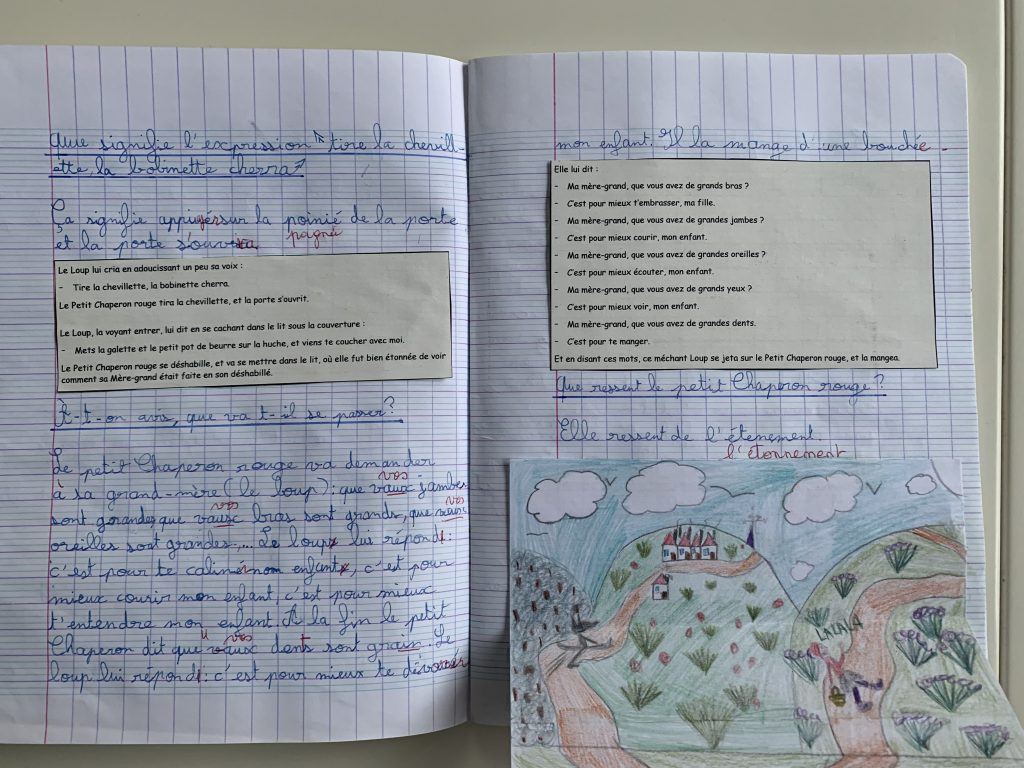 Que signifie l'expression "tire la chevill-
ette, la bobinette cherra"
Ça signifie appuyer sur la poinié de la porte
et la porte s'ouvrira. pognié
Le Loup lui cria en adoucissant un peu sa voix :
- Tire la chevillette, la bobinette cherra.
Le Petit Chaperon rouge tira la chevillette, et la porte s'ouvrit.
Le Loup, la voyant entrer, lui dit en se cachant dans le lit sous la couverture :
- Mets la galette et le petit pot de beurre sur la huche, et viens te coucher avec moi.
Le Petit Chaperon rouge se déshabille, et va se mettre dans le lit, où elle fut bien étonnée de voir
comment sa Mère-grand était faite en son déshabillé.
À-t-on avis, que va t-il se passer?
Le petit Chaperon rouge va demander
à sa grand-mère (le loup) : que vaux vos jambes
sont grandes, que vaux vos bras sont grands, que vos
oreilles sont grandes,... Le loup lui répond :
c'est pour te calin mon enfant, c'est pour
mieux courir mon enfant, c'est pour mieux
t'entendre mon enfant. A la fin le petit
Chaperon dit que vaux vos dents sont grain. Le
loup lui répond : c'est pour mieux te dévorer
mon enfant. Il la mange d'une bouchée.
Elle lui dit :
- Ma mère-grand, que vous avez de grands bras ?
- C'est pour mieux t'embrasser, ma fille.
- Ma mère-grand, que vous avez de grandes jambes ?
- C'est pour mieux courir, mon enfant.
- Ma mère-grand, que vous avez de grandes oreilles ?
- C'est pour mieux écouter, mon enfant.
- Ma mère-grand, que vous avez de grands yeux ?
- C'est pour mieux voir, mon enfant.
- Ma mère-grand, que vous avez de grandes dents.
- C'est pour te manger.
Et en disant ces mots, ce méchant Loup se jeta sur le Petit Chaperon rouge, et la mangea.
Que ressent le petit Chaperon rouge ?
Elle ressent de l'étenement.
l'étonnement
LALALA